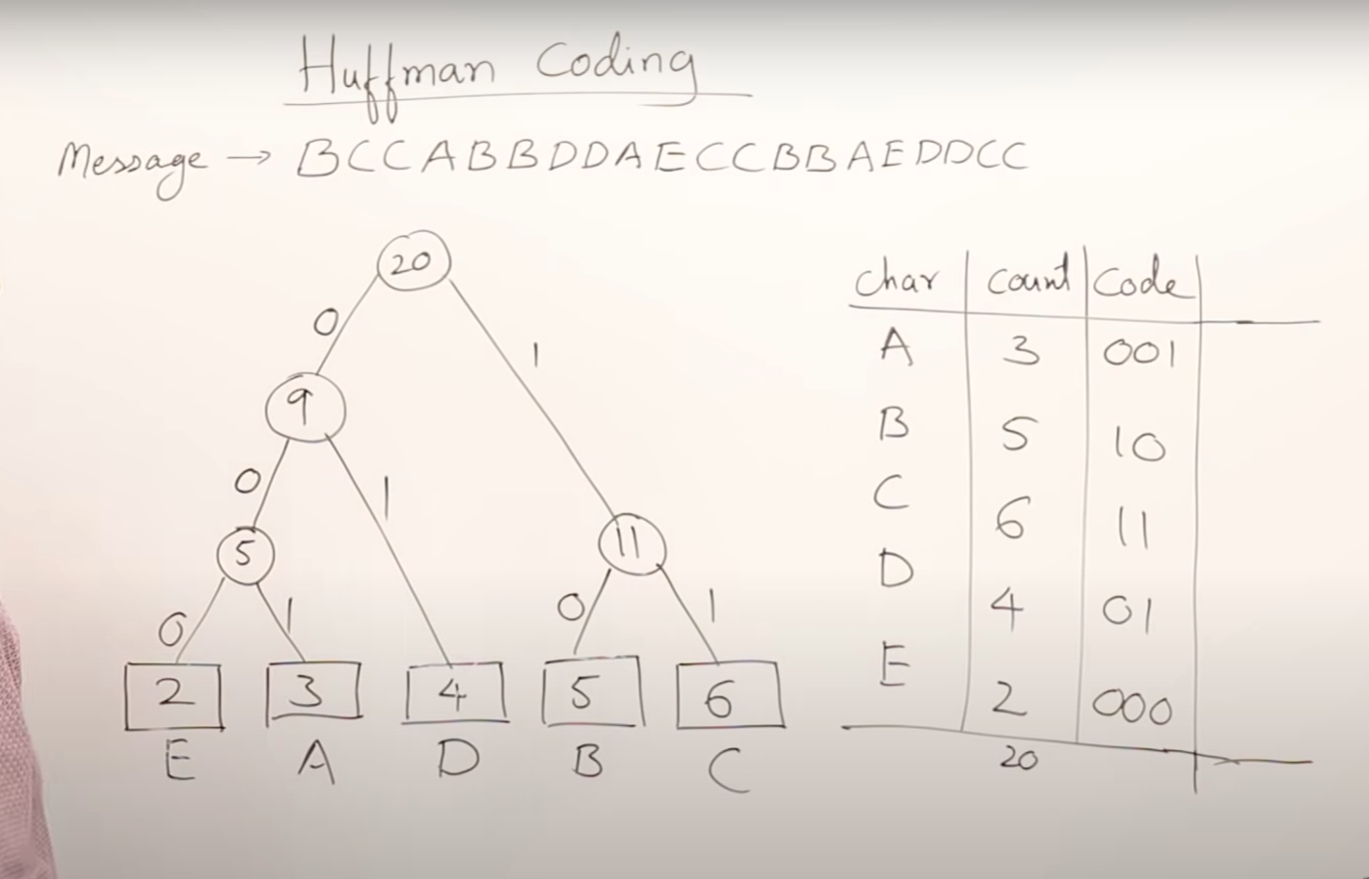 Huffman Coding
Message → BCCABBDDAECCBBAEDDCC
20
0 1
9
0 1
5 11
0 1 0 1
2 3 4 5 6
E A D B C
Char Count Code
A 3 001
B 5 10
C 6 11
D 4 01
E 2 000
20